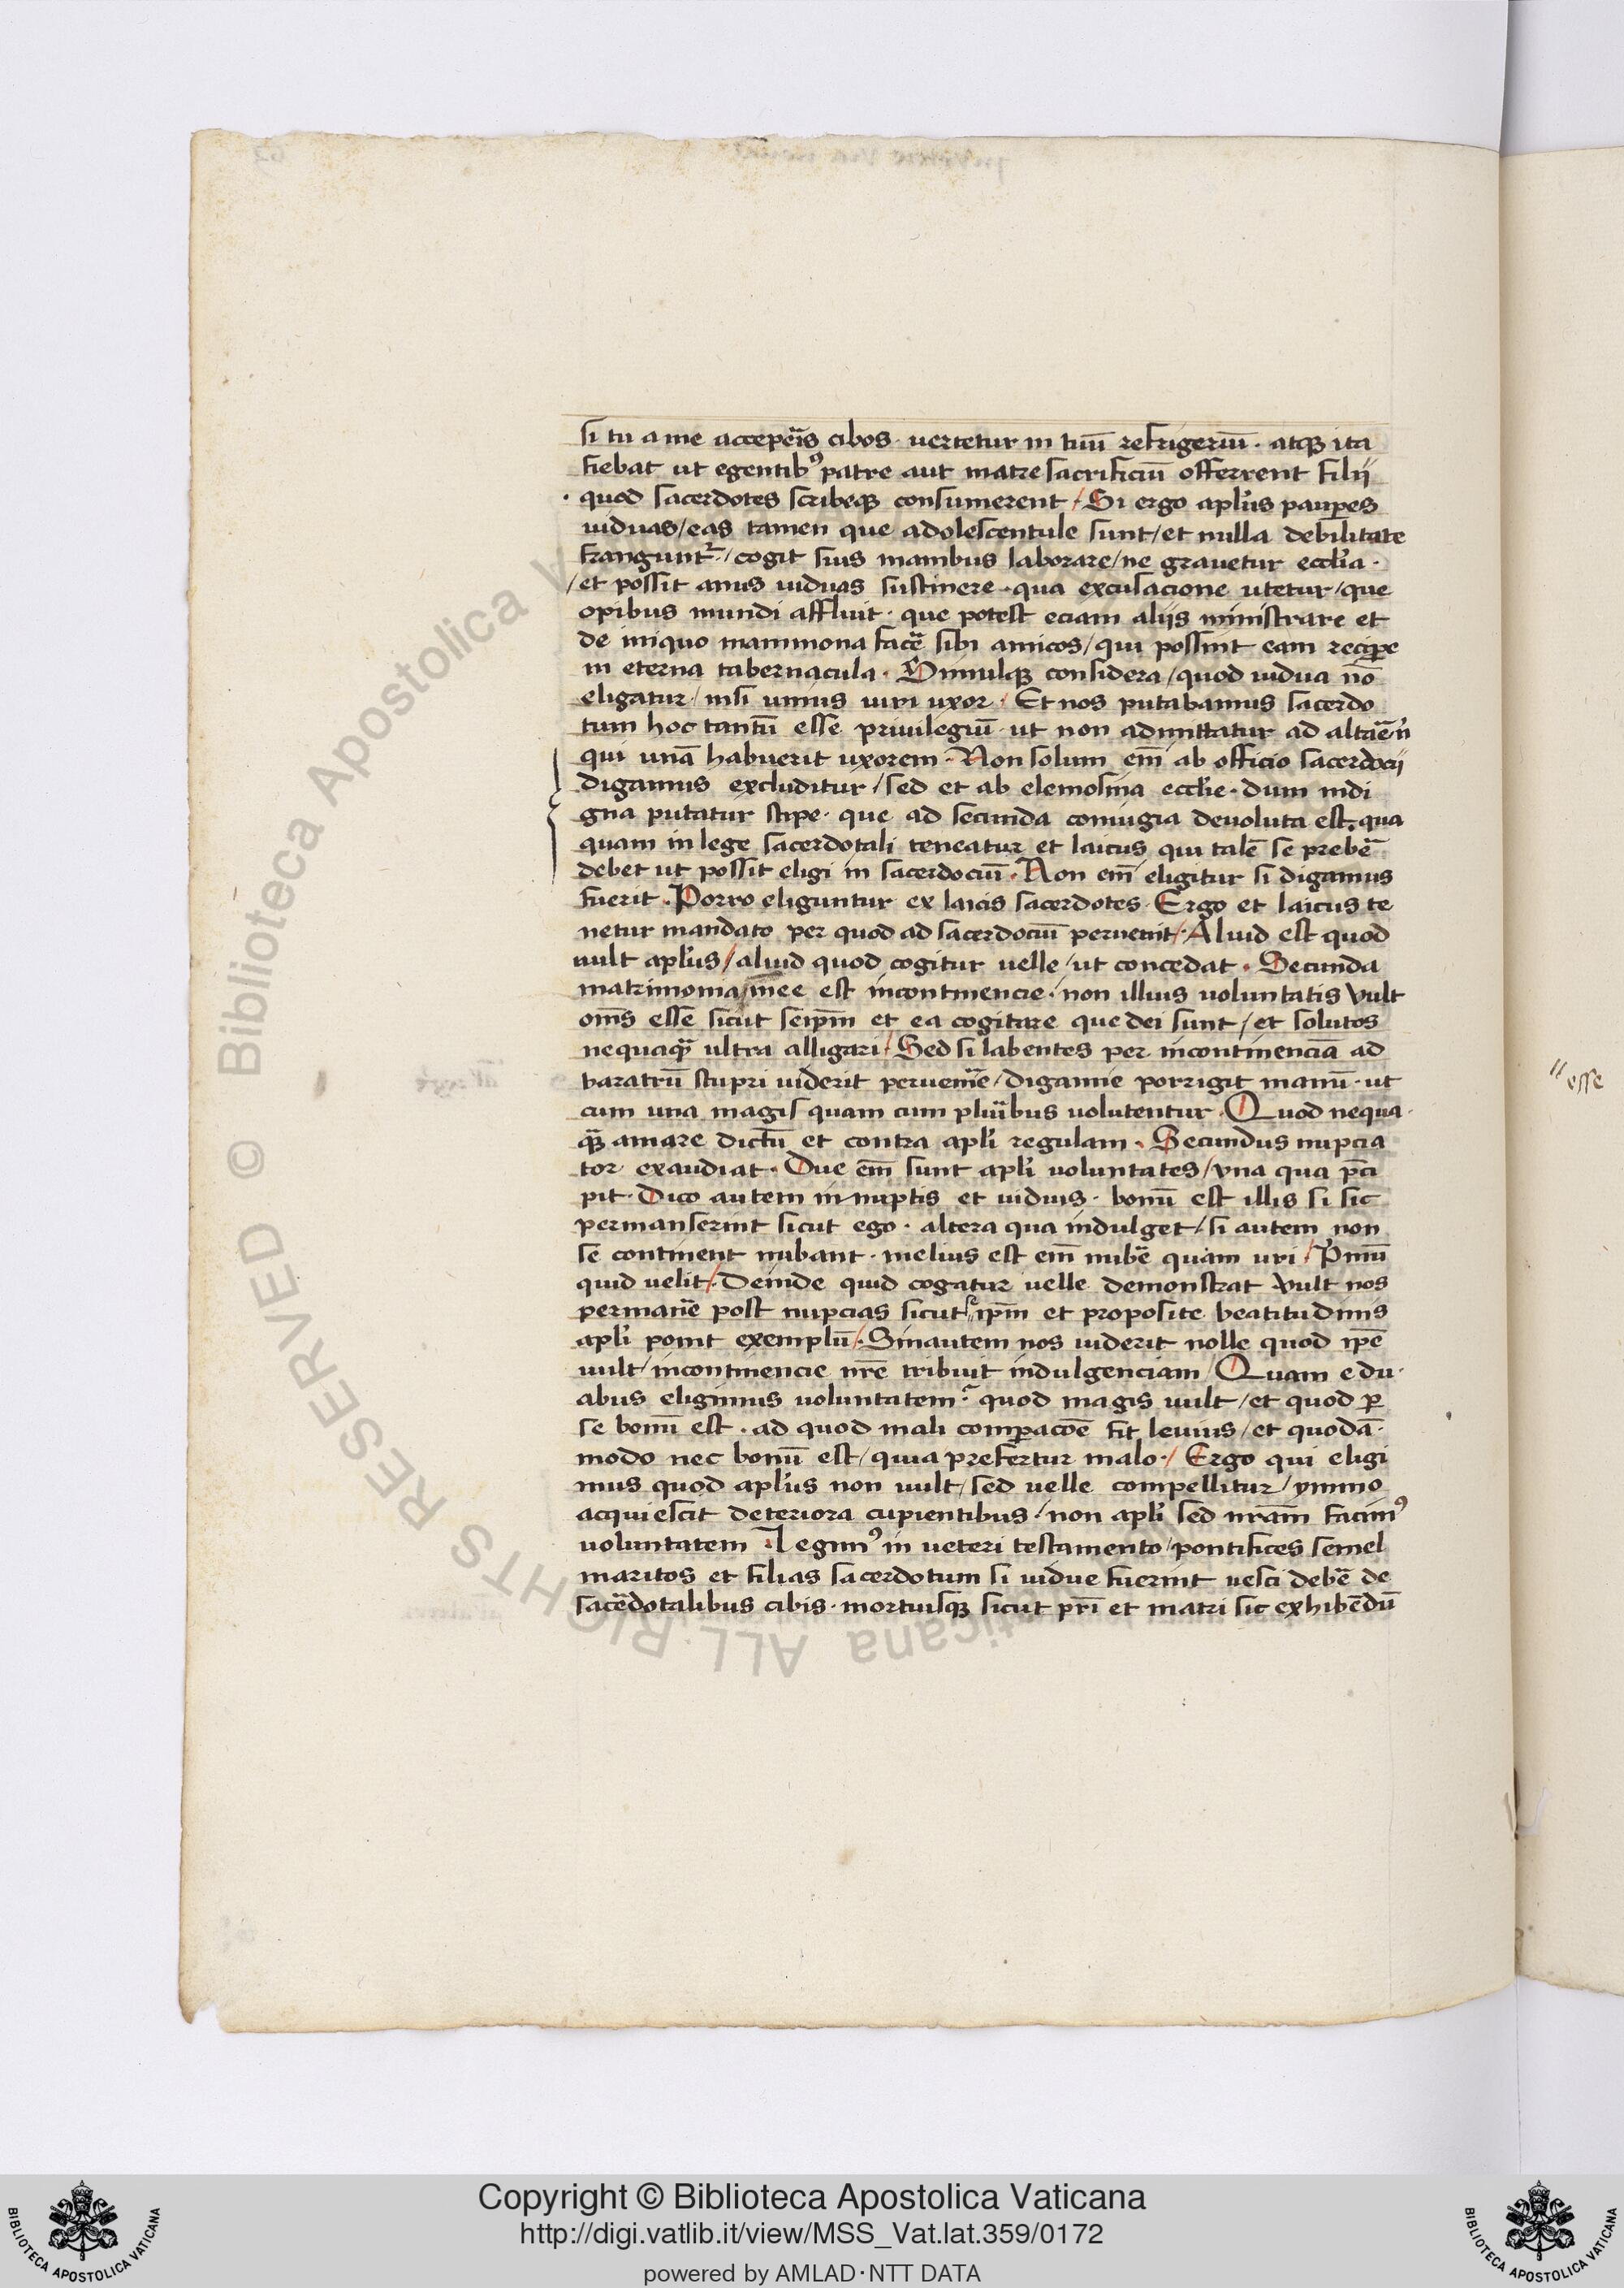 si tu a me accep̄is cibos · uertetur in tuū refrigeriū · atq̨ ita
fiebat ut egentibꝰ patre aut matre sacrificiū offerrent filij
· quod sacerdotes scribeq̨ consumerent / Si ergo apl'us paup̱es
uiduas / eas tamen que adolescentule sunt / et nulla debilitate
frangunt᷑ / cogit suis manibus laborare / ne grauetur eccl'ia ·
/ et possit anus uiduas sustinere · qua excusacione utetur / que
opibus mundi affluit · que potest eciam alijs ministrare et
de iniquo mammona facē sibi amicos / qui possint eam recip̱e
in eterna tabernacula · Simulq̨ considera / quod uidua nō
eligatur / nisi unius uiri uxor / Et nos putabamus sacerdo
tum hoc tantū esse priuilegiū · ut non admittatur ad altaē n̉
qui unā habuerit uxorem · Non solum em̄ ab officio sacerdocij
digamus excluditur / sed et ab elemosina eccl'ie · dum indi
gna putatur stipe · que ad secunda coniugia deuoluta est · qua
quam in lege sacerdotali teneatur et laicus qui talē se prebē
debet ut possit eligi in sacerdociū · Non em̄ eligitur si digamus
fuerit · Porro eliguntur ex laicis sacerdotes · Ergo et laicus te
netur mandato per quod ad sacerdociū peruenit / Aliud est quod
uult apl'us / aliud quod cogitur uelle / ut concedat · Secunda
matrimonia / mee est incontinencie · non illius uoluntatis Vult
om̄s esse sicut seip̄m et ea cogitare que dei sunt / et solutos
nequaq̄ ultra alligari / Sed si labentes per incontinenciā ad
baratrū stupri uiderit peruenīe / digamie porrigit manū · ut
cum una magis quam cum plurībus uolutentur · Quod nequa
q̄ amare dictū et contra apl'i regulam · Secundus nupcia
tor exaudiat · Due em̄ sunt apl'i uoluntates / vna qua p̄ci
pit · Dico autem innuptis et uiduis · bonū est illis si sic
permanserint sicut ego · altera qua indulget / si autem non
se continent nubant · melius est em̄ nubē quam uri / P̉mū
quid uelit / Deinde quid cogatur uelle demonstrat Vult nos
permanē post nupcias sicut se ip̄m et proposite beatitudinis
apl'i ponit exemplū / Sinautem nos uiderit nolle quod ip̄e
uult / incontinencie nr̄e tribuit indulgenciam / Quam e du
abus eligimus uoluntatem ? quod magis uult / et quod ꝑ
se bonū est · ad quod mali comꝑacōe fit leuius / et quodā
modo nec bonū est / quia prefertur malo · / Ergo qui eligi
mus quod apl'us non uult / sed uelle compellitur / ymmo
acquiescit deteriora cupientibus / non apl'i sed nr̄am facimꝰ
uoluntatem · Legimꝰ in ueteri testamento / pontifices semel
maritos et filias sacerdotum si uidue fuerint uesci debē de
sac̄dotalibus cibis · mortuisq̨ sicut pr̄i et matri sic exhibēdū
"esse
© Biblioteca Apostolica Vaticana ALL RIGHTS RESERVED
Copyright © Biblioteca Apostolica Vaticana
http://digi.vatlib.it/view/MSS_Vat.lat.359/0172
powered by AMLAD·NTT DATA
BIBLIOTECA APOSTOLICA VATICANA
BIBLIOTECA APOSTOLICA VATICANA